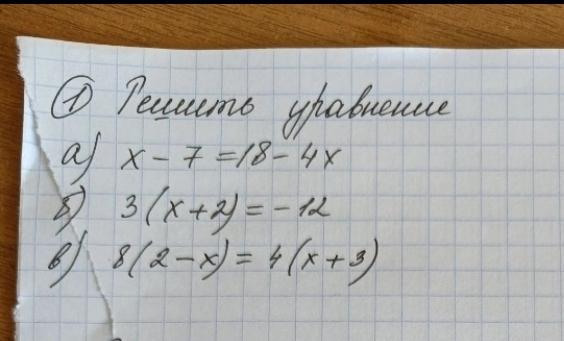 ① Решить уравнение
а) x - 7 = 18 - 4x
б) 3(x+2) = -12
в) 8(2-x) = 4(x+3)